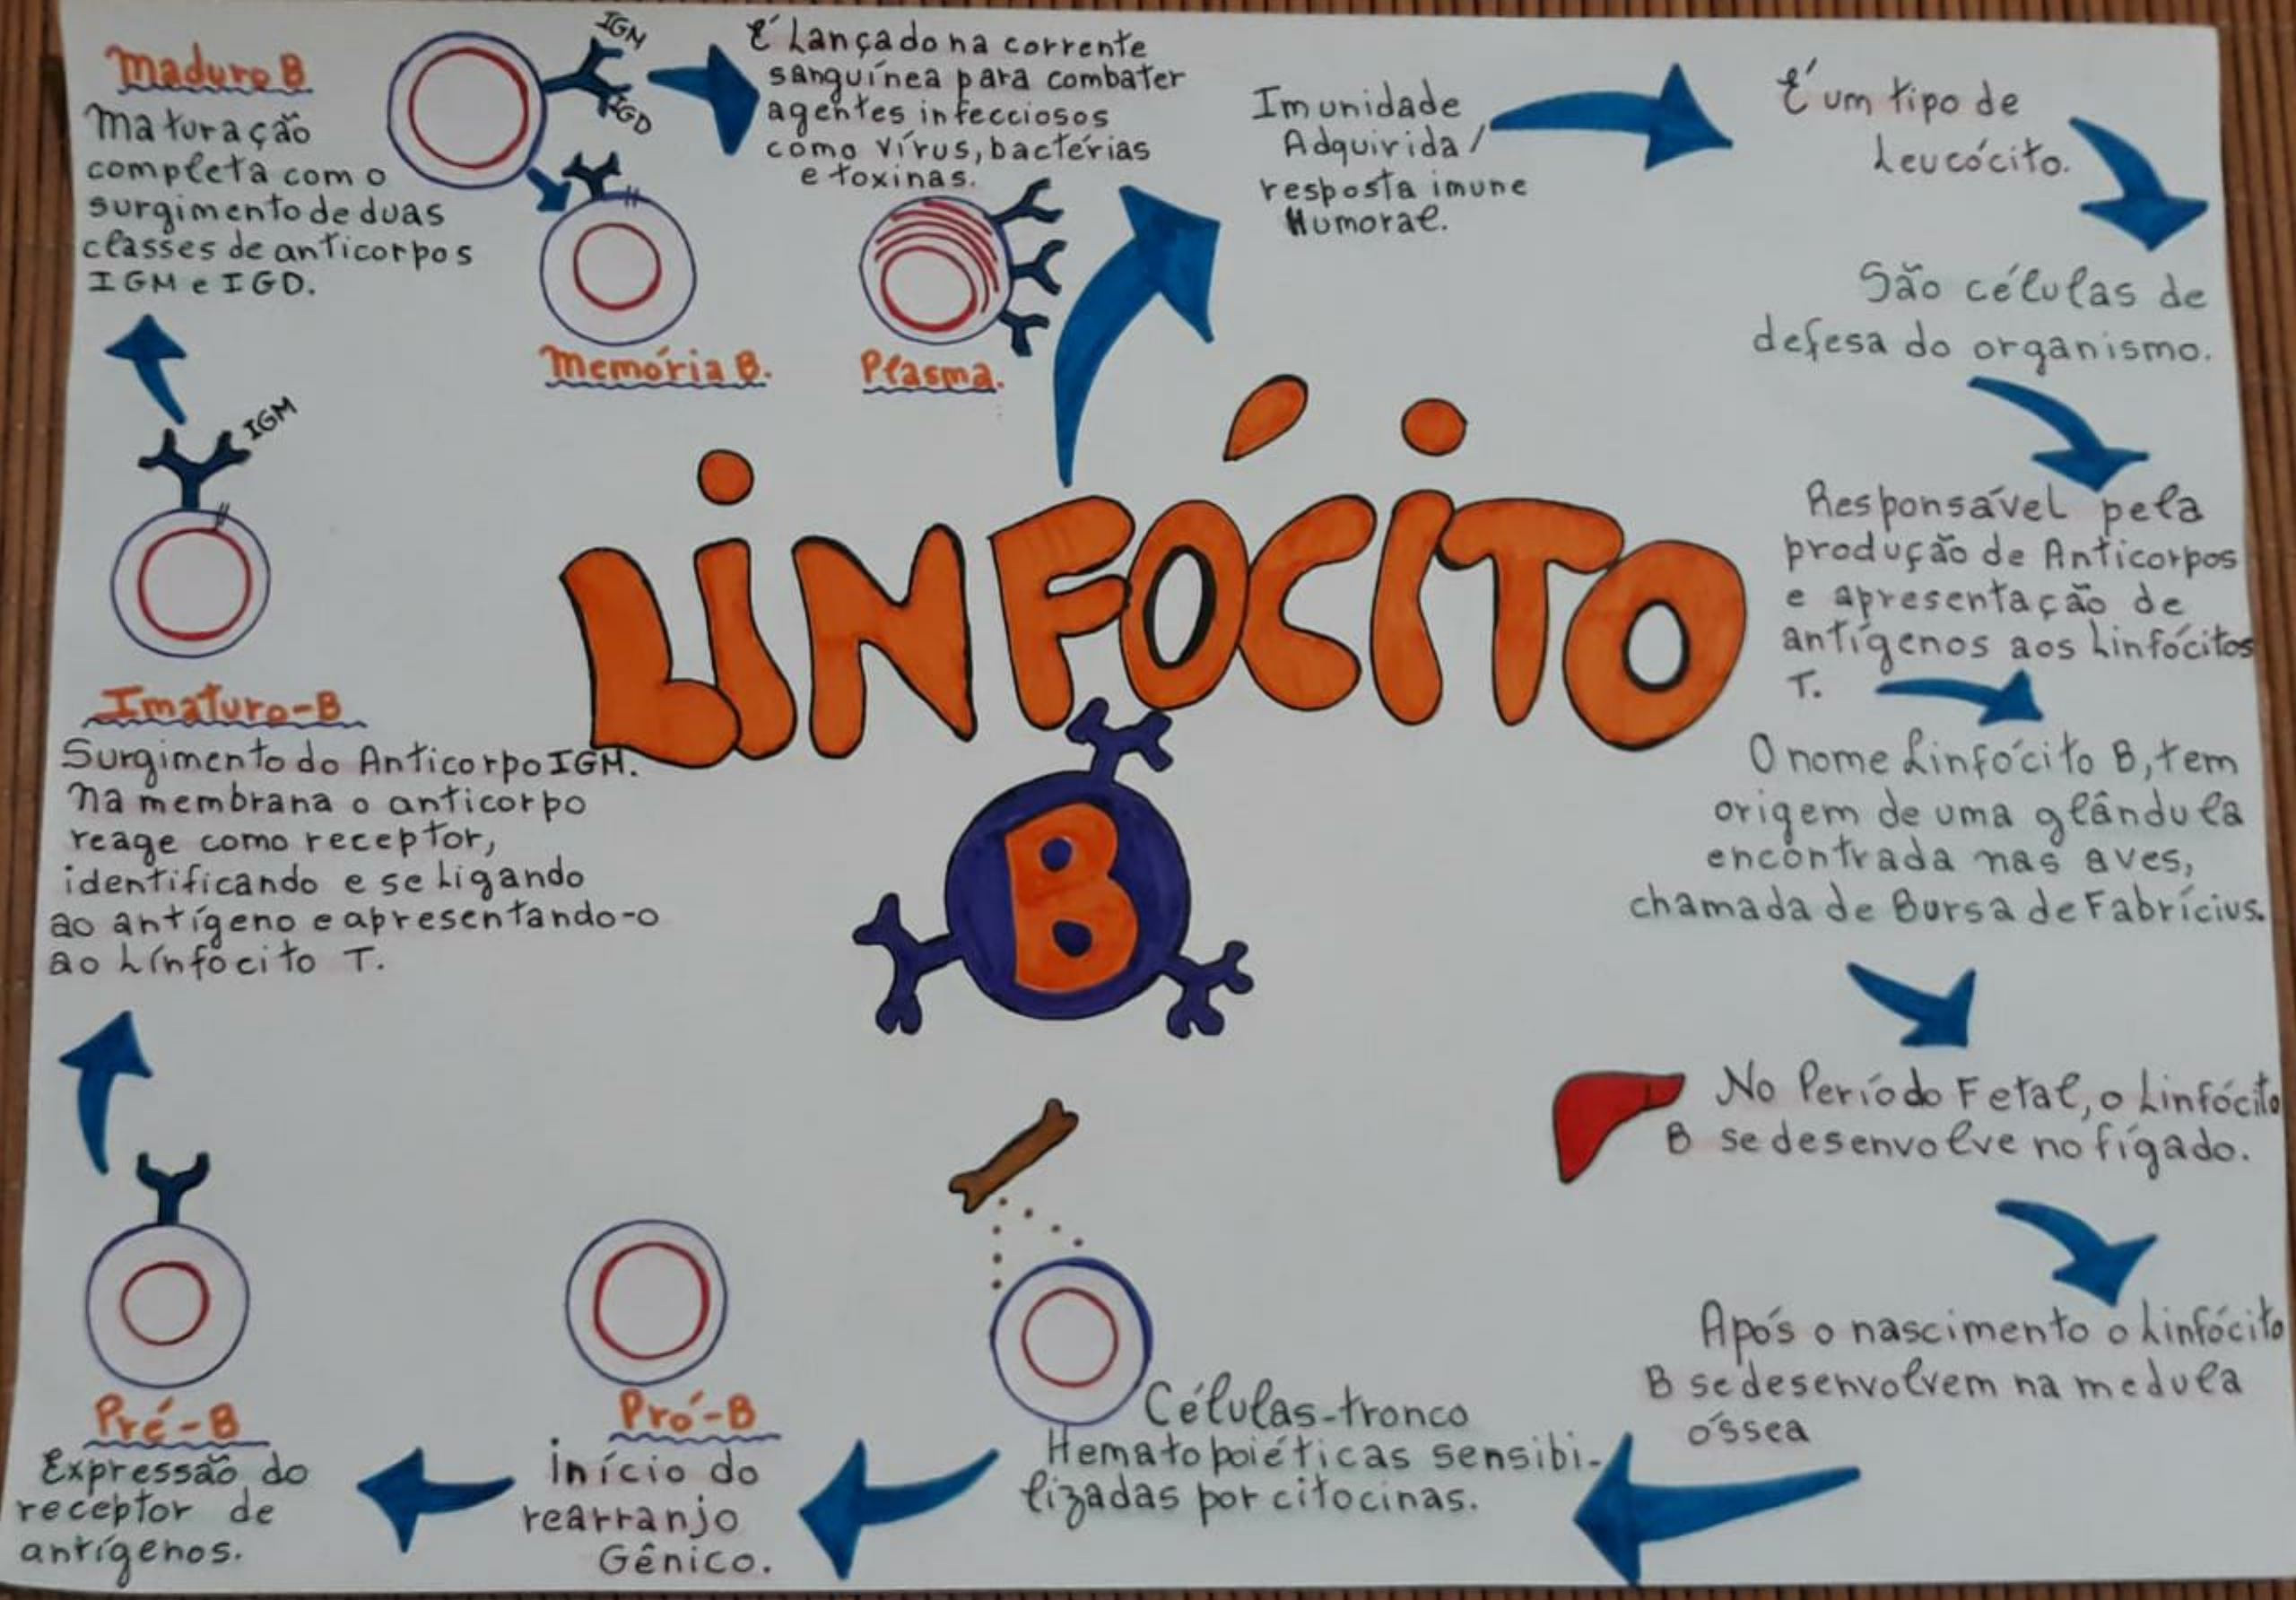 LINFÓCITO
B
Imunidade
Adquirida/
resposta imune
Humoral.
É um tipo de
Leucócito.
São células de
defesa do organismo.
Responsável pela
produção de Anticorpos
e apresentação de
antígenos aos Linfócitos
T.
O nome Linfócito B, tem
origem de uma glândula
encontrada nas aves,
chamada de Bursa de Fabrícius.
No Período Fetal, o Linfócito
B se desenvolve no fígado.
Após o nascimento o Linfócito
B se desenvolvem na medula
óssea
Células-tronco
Hematopoiéticas sensibi-
lizadas por citocinas.
Pró-B
Início do
rearranjo
Gênico.
Pré-B
Expressão do
receptor de
antígenos.
Imaturo-B
Surgimento do Anticorpo IGM.
Na membrana o anticorpo
reage como receptor,
identificando e se ligando
ao antígeno e apresentando-o
ao Línfocito T.
IGM
Maduro B
Maturação
completa com o
surgimento de duas
classes de anticorpos
IGM e IGD.
IGM
IGD
Memória B.
É Lançado na corrente
sanguínea para combater
agentes infecciosos
como vírus, bactérias
e toxinas.
Plasma.